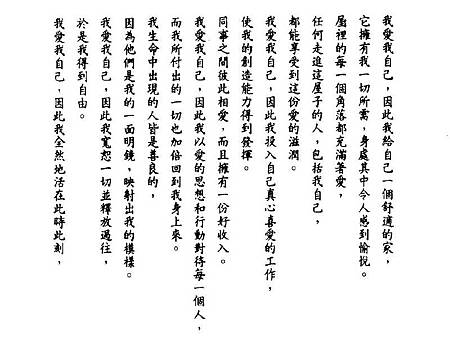 我愛我自己，因此我給自己一個舒適的家，
它擁有我一切所需，身處其中令人感到愉悅。
屋裡的每一個角落都充滿著愛，
任何走進這屋子的人，包括我自己，
都能享受到這份愛的滋潤。
我愛我自己，因此我投入自己真心喜愛的工作，
使我的創造能力得到發揮。
同事之間彼此相愛，而且擁有一份好收入。
我愛我自己，因此我以愛的思想和行動對待每一個人，
而我所付出的一切也加倍回到我身上來。
我生命中出現的人皆是善良的，
因為他們是我的一面明鏡，映射出我的模樣。
我愛我自己，因此我寬恕一切並釋放過往，
於是我得到自由。
我愛我自己，因此我全然地活在此時此刻，